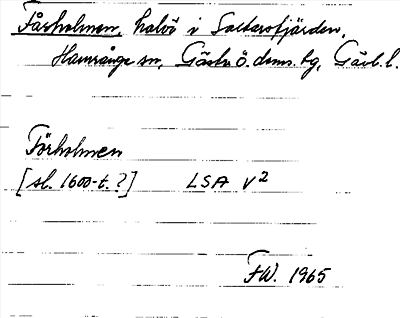 Fårholmen, halvö i Saltarsfjärden,
Hamrånge sn, Gästr. Ö. doms. hg, Gävl. l.
Förholmen
[sl. 1600-t.?] LSA V2
FW. 1965